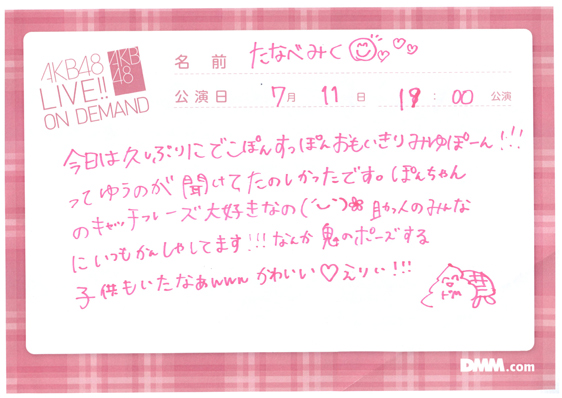 AKB48
LIVE!!
ON DEMAND
AKB
48
名 前 たなべみく
公演日 7月 11日 19:00 公演
今日は久しぶりにでこぽんすっぽんおもいきりみゆぽーん!!!
ってゆうのが聞けてたのしかったです。ぽんちゃん
のキャッチフレーズ大好きなの(´ω`)
人のみんな
にいつもかんしゃしてます!!! なんか鬼のポーズする
子供もいたなぁwwwかわいい♡えりぃ!!!
DMM.com